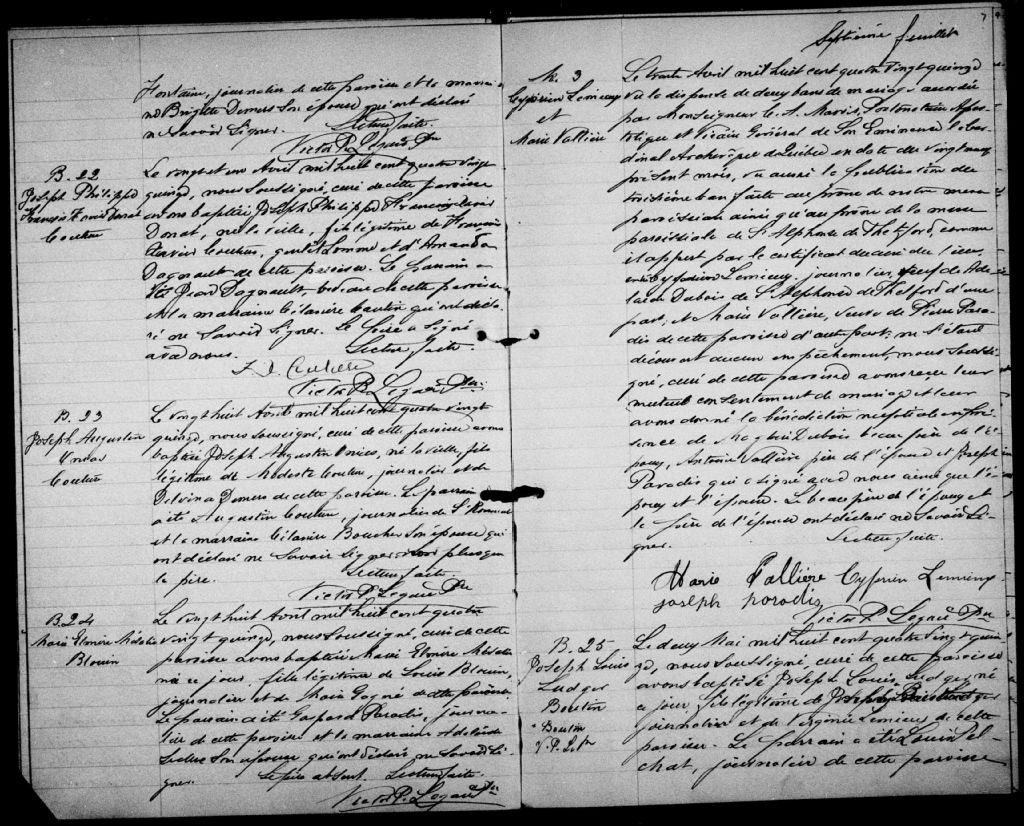 Fontaine, journalier de cette paroisse et la marrai
ne Brigitte Demers son épouse qui ont déclaré
ne savoir signer. Lecture faite.
Victor P. Légaré Ptre
B. 22
Joseph Philippe
François Xavier Donat
Couture
Le vingt et un Avril mil huit cent quatre vingt
quinze, nous soussigné, curé de cette paroisse
avons baptisé Joseph Philippe François Xavier
Donat, né la veille, fils légitime de François
Xavier Couture, gentilhomme et d'Amanda
Dagnault de cette paroisse. Le parrain a
été Dagnault, de cette paroisse
et la marraine qui ont décla
ré ne savoir signer. Le père a signé
avec nous. Lecture faite.
F. X. Couture
Victor P. Légaré Ptre
B. 23
Joseph Augustin
Couture
Le vingt huit Avril mil huit cent quatre vingt
quinze, nous soussigné, curé de cette paroisse avons
baptisé Joseph Augustin, né la veille, fils
légitime de Modeste Couture, journalier et de
Delvina Demers de cette paroisse. Le parrain a
été Augustin Couture, journalier de
et la marraine Boucher son épouse qui
ont déclaré ne savoir signer non plus que
le père. Lecture faite.
Victor P. Légaré Ptre
B. 24
Marie Elmire
Blouin
Le vingt huit Avril mil huit cent quatre
vingt quinze, nous soussigné, curé de cette
paroisse avons baptisé Marie Elmire
née ce jour, fille légitime de Louis Blouin,
journalier et de Marie Gagné de cette paroisse.
Le parrain a été Gaspard Paradis, journa
lier de cette paroisse et la marraine Adélaïde
son épouse qui ont déclaré ne savoir si
gner. Le père absent. Lecture faite.
Victor P. Légaré Ptre
7
Septième feuillet
M. 3
Cyprien Lemieux
et
Marie Vallière
Le trente Avril mil huit cent quatre vingt quinze
vu la dispense de deux bans de mariage accordée
par Monseigneur C. A. Marois, Protonotaire Apos
tolique et Vicaire Général de Son Eminence le Car
dinal Archevêque de Québec en date du vingt neuf
présent mois, vu aussi la publication du
troisième ban faite au prône de notre messe
paroissiale ainsi qu'au prône de la messe
paroissiale de St Alphonse de Thetford, comme
il appert par le certificat du curé du lieu,
entre Cyprien Lemieux, journalier, veuf de Adé
laïde Dubois de St Alphonse de Thetford d'une
part; et Marie Vallière, veuve de Pierre Para
dis de cette paroisse d'autre part; ne s'étant
découvert aucun empêchement, nous soussi
gné, curé de cette paroisse avons reçu leur
mutuel consentement de mariage et leur
avons donné la bénédiction nuptiale en pré
sence de Dubois beau-père de l'é
poux, Antoine Vallière père de l'épouse et Joseph
Paradis qui a signé avec nous ainsi que l'é
poux et l'épouse. Le beau père de l'époux et
le père de l'épouse ont déclaré ne savoir si
gner. Lecture faite.
Marie Vallière Cyprien Lemieux
joseph paradis
Victor P. Légaré Ptre
B. 25
Joseph Louis
Ludger
Boutin
Boutin
V. P. L. Ptre
Le deux Mai mil huit cent quatre vingt quin
ze, nous soussigné, curé de cette paroisse
avons baptisé Joseph Louis Ludger, né
ce jour, fils légitime de
journalier et de Virginie Lemieux de cette
paroisse. Le parrain a été Louis Pel
chat, journalier de cette paroisse